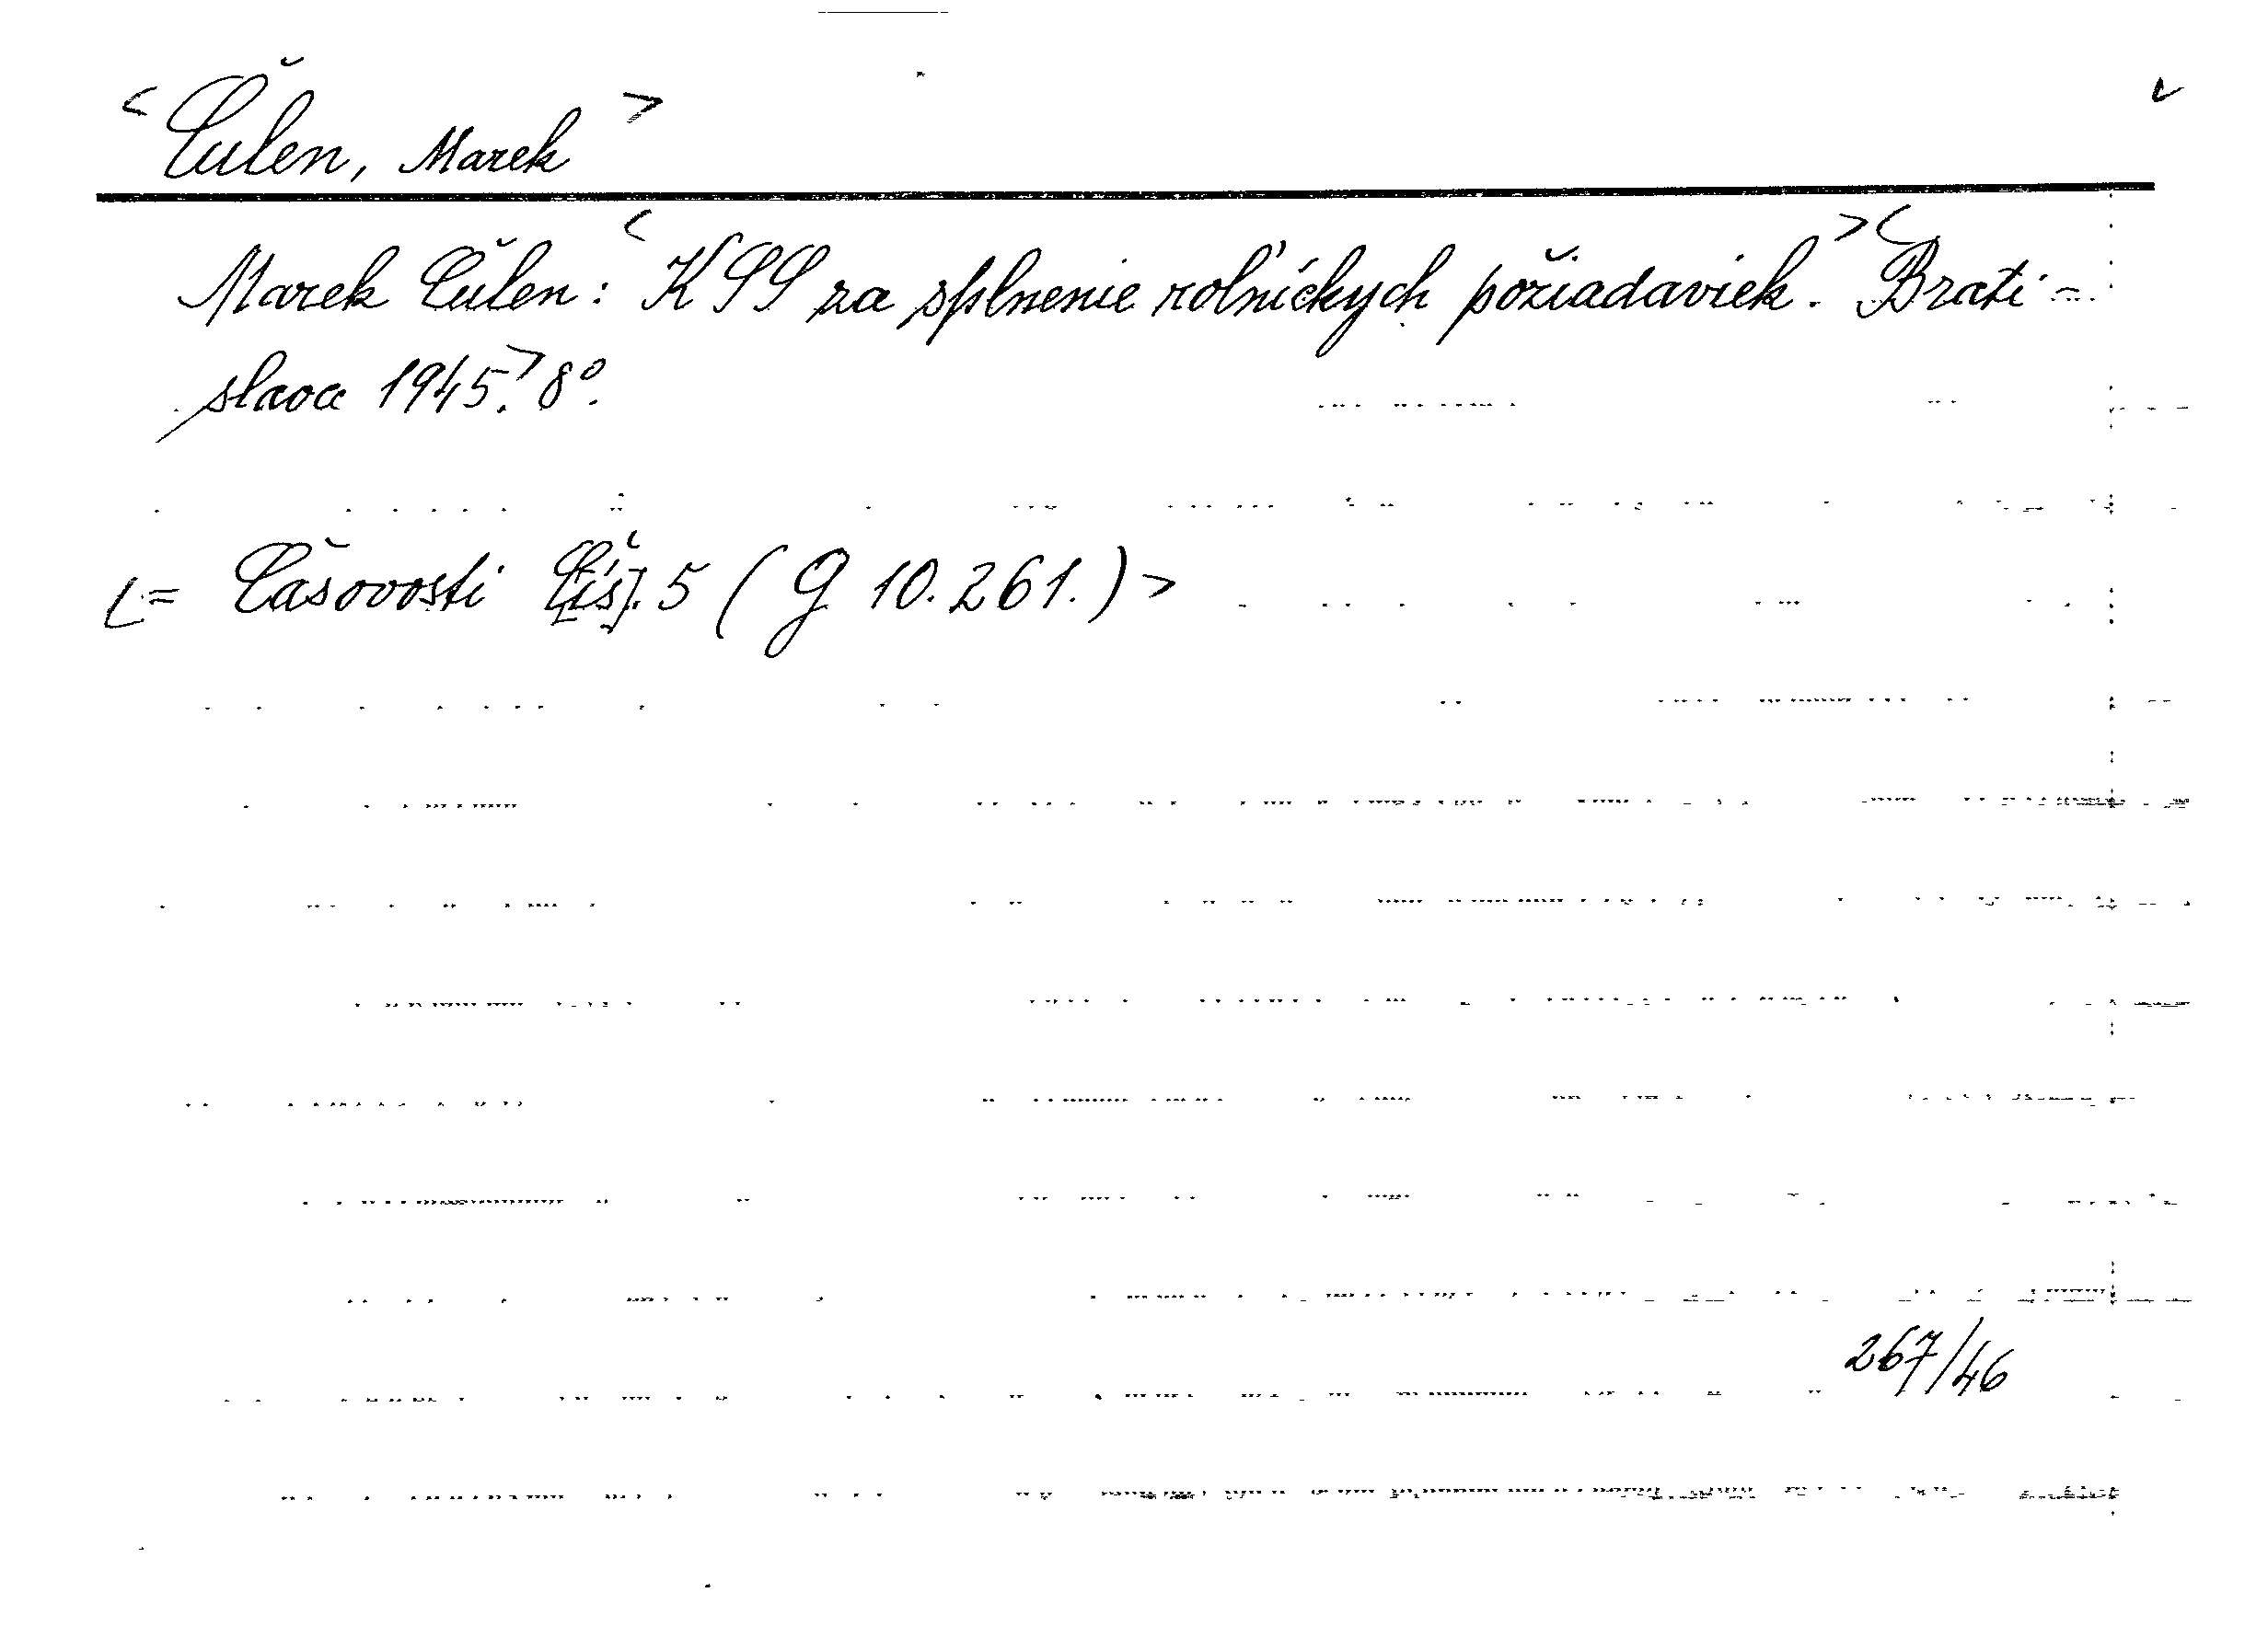 <Čulen, Marek>
Marek Čulen: <KSS za splnenie roľníckych požiadaviek.> <Brati-
slava 1945.> 8º.
<= Časovosti [Čís]. 5 (G 10.261.)>
267/46